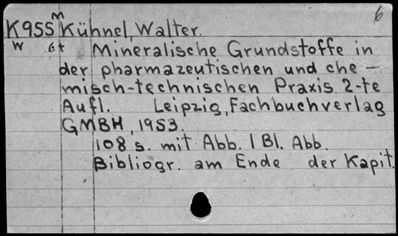 6
K955 M Kühnel, Walter.
W 6t Mineralische Grundstoffe in
der pharmazeutischen und che-
misch-technischen Praxis 2-te
Aufl. Leipzig, Fachbuchverlag
GMBH, 1953.
108 s. mit Abb. 1 Bl. Abb.
Bibliogr. am Ende der Kapit.